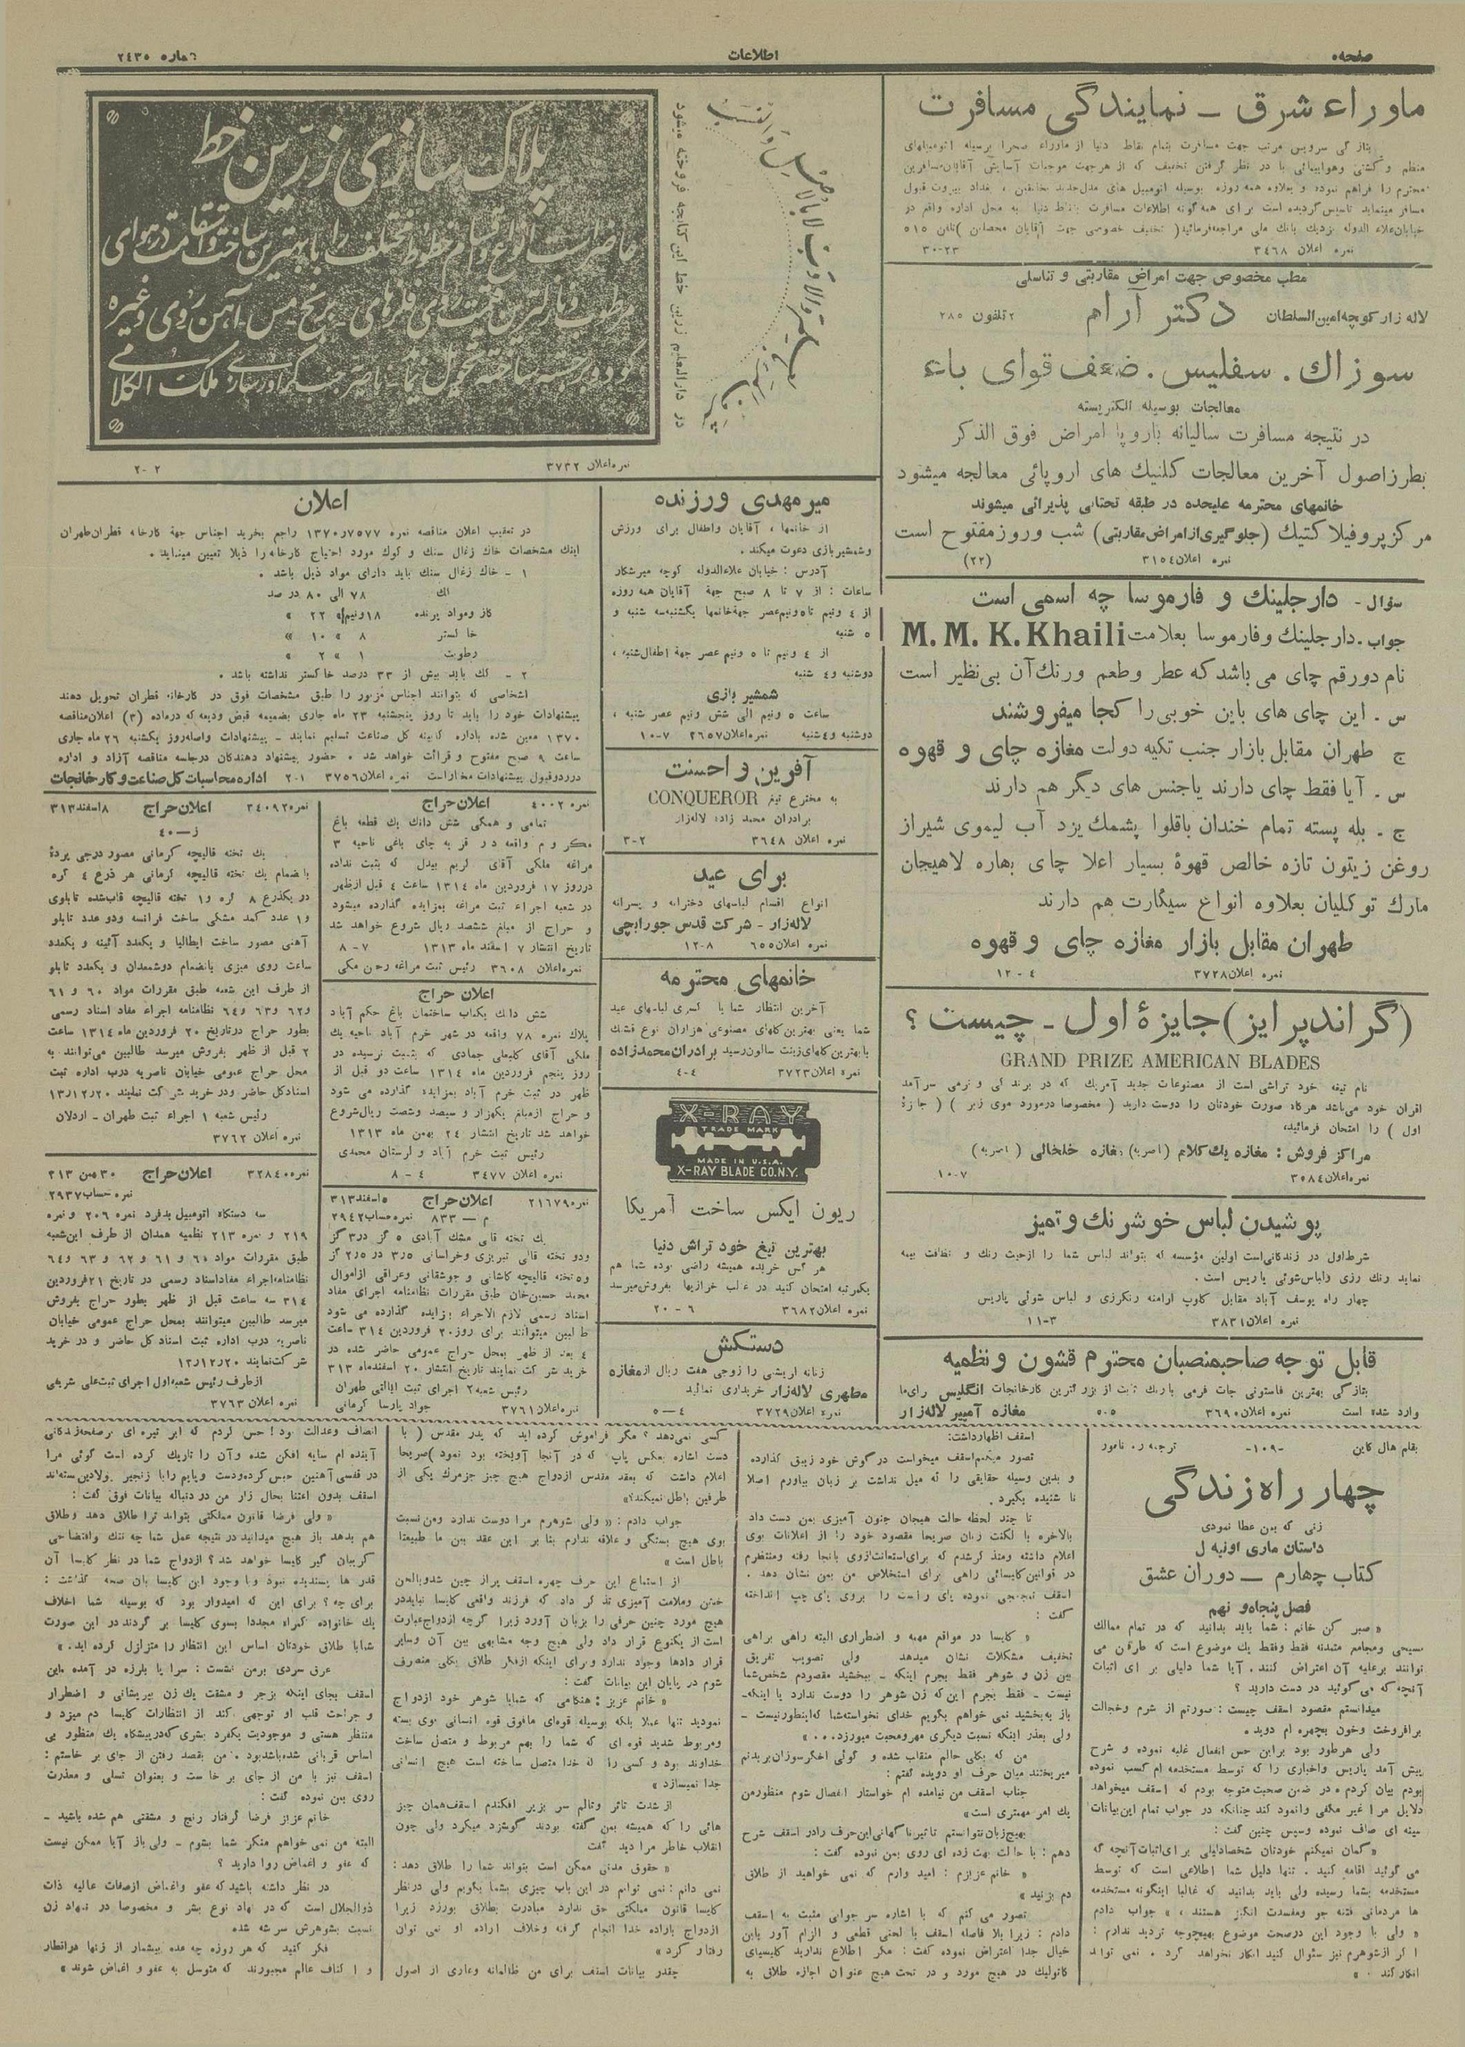 صفحه ۵
اطلاعات
شماره ۲۴۳۵
ماوراء شرق - نمایندگی مسافرت
بتازگی سرویس مرتب جهت مسافرت بتمام نقاط دنیا از ماوراء صحرا بوسیله اتومبیلهای
منظم و کشتی وهواپیمائی با در نظر گرفتن تخفیف که از هرجهت موجبات آسایش آقایان مسافرین
محترم را فراهم نموده و بعلاوه همه روزه بوسیله اتومبیل های مدل جدید خانقین ، بغداد بیروت قبول
مسافر مینماید تاسیس گردیده است برای همه گونه اطلاعات مسافرت بنقاط دنیا به محل اداره واقع در
خیابان علاء الدوله نزدیك بانك ملی مراجعه فرمائید ( تخفیف خصوصی جهت آقایان محصلین ) تلفن ۵۱۵
نمره اعلان ۳۴۶۸ ۲۳-۳۰
مطب مخصوص جهت امراض مقاربتی و تناسلی
لاله زار کوچه امین السلطان دکتر آرام تلفون ۲۸۵
سوزاك . سفلیس . ضعف قوای باء
معالجات بوسیله الکتریسته
در نتیجه مسافرت سالیانه باروپا امراض فوق الذکر
بطرز اصول آخرین معالجات کلنیك های اروپائی معالجه میشود
خانمهای محترمه علیحده در طبقه تحتانی پذیرائی میشوند
مرکز پروفیلاکتیك (جلوگیری از امراض مقاربتی) شب وروز مفتوح است
نمره اعلان ۳۱۵۴ (۲۲)
سؤال - دارجلینك و فارموسا چه اسمی است
جواب . دارجلینك وفارموسا بعلامت M. M. K. Khaili
نام دورقم چای می باشد که عطر وطعم ورنك آن بی نظیر است
س . این چای های باین خوبی را کجا میفروشند
ج طهران مقابل بازار جنب تکیه دولت مغازه چای و قهوه
س . آیا فقط چای دارند یاجنس های دیگر هم دارند
ج . بله پسته تمام خندان باقلوا پشمك یزد آب لیموی شیراز
روغن زیتون تازه خالص قهوۀ بسیار اعلا چای بهاره لاهیجان
مارك توکلیان بعلاوه انواع سیگارت هم دارند
طهران مقابل بازار مغازه چای و قهوه
نمره اعلان ۳۷۲۸ ۴ - ۱۲
(گراندپرایز) جایزۀ اول - چیست ؟
GRAND PRIZE AMERICAN BLADES
نام تیغه خود تراشی است از مصنوعات جدید آمریك که در برندگی و نرمی سرآمد
اقران خود می‌باشد هرگاه صورت خودتان را دوست دارید ( مخصوصا درمورد موی زبر ) ( جایزۀ
اول ) را امتحان فرمائید
مراکز فروش : مغازه یك کلام (ناصریه) مغازه خلخالی ( ناصریه )
نمره اعلان ۳۵۸۴ ۷-۱۰
پوشیدن لباس خوشرنك و تمیز
شرط اول در زندگانی است اولین مؤسسه که بتواند لباس شما را ازحیث رنك و نظافت بیمه
نماید رنك رزی ولباس‌شوئی پاریس است .
چهار راه یوسف آباد مقابل کلوپ ارامنه رنگرزی و لباس شوئی پاریس
نمره اعلان ۳۸۳۱ ۳-۱۱
قابل توجه صاحبمنصبان محترم قشون ونظمیه
بتازگی بهترین فاستونی جات فرمی بارنك ثابت از بزرگترین کارخانجات انگلیس برای ما
وارد شده است نمره اعلان ۳۶۹۰ ۵-۵ مغازه آمپیر لاله زار
پلاك سازی زرین خط
حاضر است انواع واقسام خطوط مختلف را با بهترین ساخت و استقامت در هوای
در دارالعلیم زرین خط این کتابچه فروخته میشود
نمره اعلان ۳۷۳۲ ۲-۲
میر مهدی ورزنده
از خانمها ، آقایان واطفال برای ورزش
وشمشیربازی دعوت میکند .
آدرس : خیابان علاءالدوله کوچه میرشکار
ساعات : از ۷ تا ۸ صبح جهة آقایان همه روزه
از ۴ ونیم تا ۵ ونیم عصر جهة خانمها یکشنبه سه شنبه و
۵ شنبه
از ۴ ونیم تا ۵ ونیم عصر جهة اطفال شنبه ،
دوشنبه و ۴ شنبه
شمشیر بازی
ساعت ۵ ونیم الی شش ونیم عصر شنبه ،
دوشنبه و ۴ شنبه نمره اعلان ۲۶۵۷ ۷-۱۰
آفرین و احسنت
به مخترع تیغ CONQUEROR
برادران محمد زاده لاله‌زار
نمره اعلان ۳۶۴۸ ۲-۳
برای عید
انواع اقسام لباسهای دخترانه و پسرانه
لاله‌زار - شرکت قدس جورابچی
نمره اعلان ۶۵۵ ۸-۱۲
خانمهای محترمه
آخرین انتظار شما با سری لباسهای عید
شما یعنی بهترین گلهای مصنوعی هزاران نوع قشنك
با بهترین گلهای زینت سالون رسید برادران محمدزاده
نمره اعلان ۳۷۲۳ ۴-۴
X-RAY
TRADE MARK
MADE IN U.S.A.
X-RAY BLADE CO.N.Y.
ریون ایکس ساخت آمریکا
بهترین تیغ خود تراش دنیا
هر کس خریده همیشه راضی بوده شما هم
یکمرتبه امتحان کنید در غالب خرازیها بفروش میرسد
نمره اعلان ۳۶۸۲ ۶ - ۲۰
دستکش
زنانه ابریشمی را زوجی هفت ریال از مغازه
مطهری لاله‌زار خریداری نمائید
نمره اعلان ۳۷۲۹ ۴-۵
اعلان
در تعقیب اعلان مناقصه نمره ۱۳۷۰٫۷۵۷۷ راجع بخرید اجناس جهة کارخانه قطران طهران
اینك مشخصات خاك زغال سنك و کوك مورد احتیاج کارخانه را ذیلا تعیین مینماید .
۱ - خاك زغال سنك باید دارای مواد ذیل باشد .
الك ۷۸ الی ۸۰ در صد
گاز ومواد پرنده ۱۸ ونیم الی ۲۲ »
خاکستر ۸ » ۱۰ »
رطوبت ۱ » ۲ »
۲ - کك باید بیش از ۳۳ درصد خاکستر نداشته باشد .
اشخاصی که بتوانند اجناس مزبور را طبق مشخصات فوق در کارخانه قطران تحویل دهند
پیشنهادات خود را باید تا روز پنجشنبه ۲۳ ماه جاری بضمیمه قبض ودیعه که درماده (۳) اعلان مناقصه
۱۳۷۰ معین شده باداره کابینه کل صناعت تسلیم نمایند - پیشنهادات واصله روز یکشنبه ۲۶ ماه جاری
ساعت ۹ صبح مفتوح و قرائت خواهد شد . حضور پیشنهاد دهندگان درجلسه مناقصه آزاد و اداره
دررد وقبول پیشنهادات مختار است نمره اعلان ۳۷۵۶ ۱-۲ اداره محاسبات کل صناعت و کارخانجات
نمره ۴۰۰۲ اعلان حراج
تمامی و همگی شش دانك یك قطعه باغ
مکروم واقعه در قریه چای باغی ناحیه ۳
مراغه ملکی آقای کریم بیدل که بثبت نداده
درروز ۱۷ فروردین ماه ۱۳۱۴ ساعت ۴ قبل از ظهر
در شعبه اجراء ثبت مراغه بمزایده گذارده میشود
و حراج از مبلغ ششصد ریال شروع خواهد شد
تاریخ انتشار ۷ اسفند ماه ۱۳۱۳ ۷-۸
نمره اعلان ۳۶۰۸ رئیس ثبت مراغه رحمن مکی
اعلان حراج
شش دانك یکباب ساختمان باغ حکم آباد
پلاك نمره ۷۸ واقعه در شهر خرم آباد ناحیه یك
ملکی آقای کلبعلی جمادی که بثبت نرسیده در
روز پنجم فروردین ماه ۱۳۱۴ ساعت دو قبل از
ظهر در ثبت خرم آباد بمزایده گذارده می شود
و حراج ازمبلغ یکهزار و سیصد وشصت ریال شروع
خواهد شد تاریخ انتشار ۲۴ بهمن ماه ۱۳۱۳
رئیس ثبت خرم آباد و لرستان محمدی
نمره اعلان ۳۴۷۷ ۴ - ۸
نمره ۲۱۶۷۹ اعلان حراج ۵ اسفند ۳۱۳
م - ۸۳۳ نمره حساب ۲۹۴۲
یك تخته قالی مشك آبادی ۵ گز در ۳ گز
ودو تخته قالی تبریزی وخراسانی ۳٫۵ در ۲٫۵ گز
و ۵ تخته قالیچه کاشانی و جوشقانی وعراقی ازاموال
محمد حسین‌خان طبق مقررات نظامنامه اجرای مفاد
اسناد رسمی لازم الاجراء بمزایده گذارده می شود
طالبین میتوانند برای روز ۲۰ فروردین ۳۱۴ ساعت
۴ بعد از ظهر بمحل حراج عمومی حاضر شده در
خرید شرکت نمایند تاریخ انتشار ۲۰ اسفندماه ۳۱۳
رئیس شعبه ۲ اجرای ثبت ایالتی طهران
نمره اعلان ۳۷۶۱ جواد پارسا کرمانی
نمره ۳۴۰۹۲ اعلان حراج ۸ اسفند ۳۱۳
ز - ۴۰
یك تخته قالیچه کرمانی مصور درجی پردۀ
باضمام یك تخته قالیچه کرمانی هر ذرع ۴ گره
در یکذرع ۸ گره و ۱ تخته قالیچه قاب‌شده تابلوی
و ۱ عدد کمد مشکی ساخت فرانسه ودو عدد تابلو
آهنی مصور ساخت ایطالیا و یکعدد آئینه و یکعدد
ساعت روی میزی بانضمام دوشمعدان و یکعدد تابلو
از طرف این شعبه طبق مقررات مواد ۶۰ و ۶۱
و ۶۲ و ۶۳ و ۶۴ نظامنامه اجراء مفاد اسناد رسمی
بطور حراج درتاریخ ۲۰ فروردین ماه ۱۳۱۴ ساعت
۲ قبل از ظهر بفروش میرسد طالبین می‌توانند به
محل حراج عمومی خیابان ناصریه درب اداره ثبت
اسناد کل حاضر ودر خرید شرکت نمایند ۱۳٫۱۲٫۲۰
رئیس شعبه ۱ اجراء ثبت طهران - اردلان
نمره اعلان ۳۷۶۲
نمره ۳۲۸۴۰ اعلان حراج ۳۰ بهمن ۳۱۳
نمره حساب ۲۹۳۷
سه دستگاه اتومبیل بدفرد نمره ۲۰۶ و نمره
۲۱۹ و نمره ۲۱۳ نظمیه همدان از طرف این شعبه
طبق مقررات مواد ۶۰ و ۶۱ و ۶۲ و ۶۳ و ۶۴
نظامنامه اجراء مفاد اسناد رسمی در تاریخ ۲۱ فروردین
۳۱۴ سه ساعت قبل از ظهر بطور حراج بفروش
میرسد طالبین میتوانند بمحل حراج عمومی خیابان
ناصریه درب اداره ثبت اسناد کل حاضر و در خرید
شرکت نمایند ۱۳٫۱۲٫۲۰
از طرف رئیس شعبه اول اجرای ثبت علی شریفی
نمره اعلان ۳۷۶۳
بقلم هال کاین -۱۰۹- ترجمه ر . نامور
چهار راه زندگی
زنی که بمن عطا نمودی
داستان ماری اونیه ل
کتاب چهارم - دوران عشق
فصل پنجاه و نهم
« صبر کن خانم : شما باید بدانید که در تمام ممالک
مسیحی ومجامع متمدنه فقط وفقط یك موضوع است که طرفین می
توانند برعلیه آن اعتراض کنند . آیا شما دلیلی برای اثبات
آنچه که می گوئید در دست دارید ؟
میدانستم مقصود اسقف چیست : صورتم از شرم وخجالت
برافروخت وخون بچهره ام دوید .
ولی هرطور بود براین حس انفعال غلبه نموده و شرح
پیش آمد پاریس واخباری را که توسط مستخدمه ام کسب نموده
بودم بیان کردم . در ضمن صحبت متوجه بودم که اسقف میخواهد
دلایل مرا غیر مکفی وانمود کند چنانکه در جواب تمام این بیانات
سینه ای صاف نموده وسپس چنین گفت :
« گمان نمیکنم خودتان شخصا دلیلی برای اثبات آنچه که
می گوئید اقامه کنید . تنها دلیل شما اطلاعی است که توسط
مستخدمه بشما رسیده ولی باید بدانید که غالبا اینگونه مستخدمه
ها مردمانی فتنه جو ومفسدت انگیز هستند . » جواب دادم
« ولی با وجود این درصحت موضوع بهیچوجه تردید ندارم :
اگر ازشوهرم نیز سئوال کنید انکار نخواهد کرد . نمی تواند
انکار کند . »
اسقف اظهارداشت:
تصور میکنم اسقف میخواست در گوش خود زیبق گذارده
و بدین وسیله حقایقی را که میل نداشت بر زبان بیاورم اصلا
نا شنیده بگیرد .
تا چند لحظه حالت هیجان جنون آمیزی بمن دست داد
بالاخره با لکنت زبان صریحا مقصود خود را از اعلانات بوی
اعلام داشته ومتذکر شدم که برای استعانت ازوی بانجا رفته ومنتظرم
در قوانین کلیسائی راهی برای استخلاص من بمن نشان دهد .
اسقف تمجمجی نموده پای راست را بروی پای چپ انداخته
گفت :
« کلیسا در مواقع مهمه و اضطراری البته راهی براهی
تخفیف مشکلات نشان میدهد ولی تصویب تفریق
بین زن و شوهر فقط بجرم اینکه - ببخشید مقصودم شخص شما
نیست - فقط بجرم این که زن شوهر را دوست ندارد یا اینکه-
باز ببخشید نمی خواهم بگویم خدای نخواسته شما که اینطور نیست -
ولی بعذر اینکه نسبت دیگری مهرومحبت میورزد . . »
من که بکلی حالم منقلب شده و گوئی اخگر سوزان بریدنم
میریختند میان حرف او دویده گفتم :
جناب اسقف من نیامده ام خواستار انفصال شوم منظور من
یك امر مهمتری است »
بهیچ زبان نتوانستم تاثیر ناگهانی این حرف رادر اسقف شرح
دهم : با حالت بهت زده ای روی بمن نموده گفت :
« خانم عزیزم : امید وارم که نمی خواهید از طلاق
دم بزنید »
تصور می کنم که با اشاره سر جوابی مثبت به اسقف
دادم : زیرا بلا فاصله اسقف با لحنی قطعی و الزام آور باین
خیال جدا اعتراض نموده گفت : مگر اطلاع ندارید کلیسیای
کاتولیك در هیچ مورد و در تحت هیچ عنوان اجازه طلاق به
کسی نمی‌دهد ؟ مگر فراموش کرده اید که پدر مقدس ( با
دست اشاره بعکس پاپ که در آنجا آویخته بود نمود ) صریحا
اعلام داشت که بعقد مقدس ازدواج هیچ چیز جزمرك یکی از
طرفین باطل نمیکند؟»
جواب دادم : « ولی شوهرم مرا دوست ندارد ومن نسبت
بوی هیچ بستگی و علاقه ندارم بنا بر این عقد بین ما طبیعتا
باطل است »
از استماع این حرف چهره اسقف پراز چین شد وبالحن
خشن وملامت آمیزی تذکر داد که فرزند واقعی کلیسا نبایددر
هیچ مورد چنین حرفی را بزبان آورد زیرا گرچه ازدواج عبارت
است از یکنوع قرار داد ولی هیچ وجه مشابهی بین آن وسایر
قرار دادها وجود ندارد وبرای اینکه ازفکر طلاق بکلی منصرف
شوم در پایان این بیانات گفت :
« خانم عزیز : هنگامی که شمابا شوهر خود ازدواج
نمودید تنها عملا بلکه بوسیله قوه‌ای مافوق قوه انسانی بوی بسته
ومربوط شدید قوه ای که شما را بهم مربوط و متصل ساخت
خداوند بود و کسی را که خدا متصل ساخته است هیچ انسانی
جدا نمیسازد »
از شدت تاثر وتالم سر بزیر افکندم اسقف همان چیز
هائی را که همیشه بمن گفته بودند گوشزد میکرد ولی چون
انقلاب خاطر مرا دید گفت
« حقوق مدنی ممکن است بتواند شما را طلاق دهد :
نمی دانم : نمی توانم در این باب چیزی بشما بگویم ولی درنظر
کلیسا قانون مملکتی حق ندارد مبادرت بطلاق بورزد زیرا
ازدواج باراده خدا انجام گرفته وخلاف اراده او نمی توان
رفتار کرد »
چقدر بیانات اسقف برای من ظالمانه وعاری از اصول
انصاف وعدالت بود ! حس کردم که ابر تیره ای برصفحه زندگانی
آینده ام سایه افکن شده وآن را تاریك کرده است گوئی مرا
در قفسی آهنین حبس کرده ودست وپایم را با زنجیر پولادین بسته‌اند
اسقف بدون اعتنا بحال زار من در دنباله بیانات فوق گفت :
« ولی فرضا قانون مملکتی بتواند ترا طلاق دهد وطلاق
هم بدهد باز هیچ میدانید در نتیجه عمل شما چه ننك وافتضاحی
گریبان گیر کلیسا خواهد شد ؟ ازدواج شما در نظر کلیسا آن
قدر ها پسندیده نبود وبا وجود این کلیسا بان صحه گذاشت :
برای چه ؟ برای این که امیدوار بود که بوسیله شما اخلاف
یك خانواده گمراه مجددا بسوی کلیسا بر گردند در این صورت
شمابا طلاق خودتان اساس این انتظار را متزلزل کرده اید . »
عرق سردی برمن نشست : سراپا بلرزه در آمدم . این
اسقف بجای اینکه بزجر و مشقت یك زن بپریشانی و اضطرار
و جراحت قلب او توجهی کند از انتظارات کلیسا دم میزد و
منتظر هستی و موجودیت یکفرد بشری که درپیشگاه یك منظور بی
اساس قربانی شده باشد بود . من بقصد رفتن از جای بر خاستم :
اسقف نیز با من از جای بر خاست و بعنوان تسلی و معذرت
روی بمن نموده گفت :
خانم عزیز فرضا گرفتار رنج و مشقتی هم شده باشید -
البته من نمی خواهم منکر شما بشوم - ولی باز آیا ممکن نیست
که عفو و اغماض روا دارید ؟
در نظر داشته باشید که عفو واغماض ازصفات عالیه ذات
ذوالجلال است که در نهاد نوع بشر و مخصوصا در نهاد زن
نسبت بشوهرش سرشته شده
فکر کنید که هر روزه چه عده بیشمار از زنها در اقطار
و اکناف عالم مجبورند که متوسل به عفو و اغماض شوند »